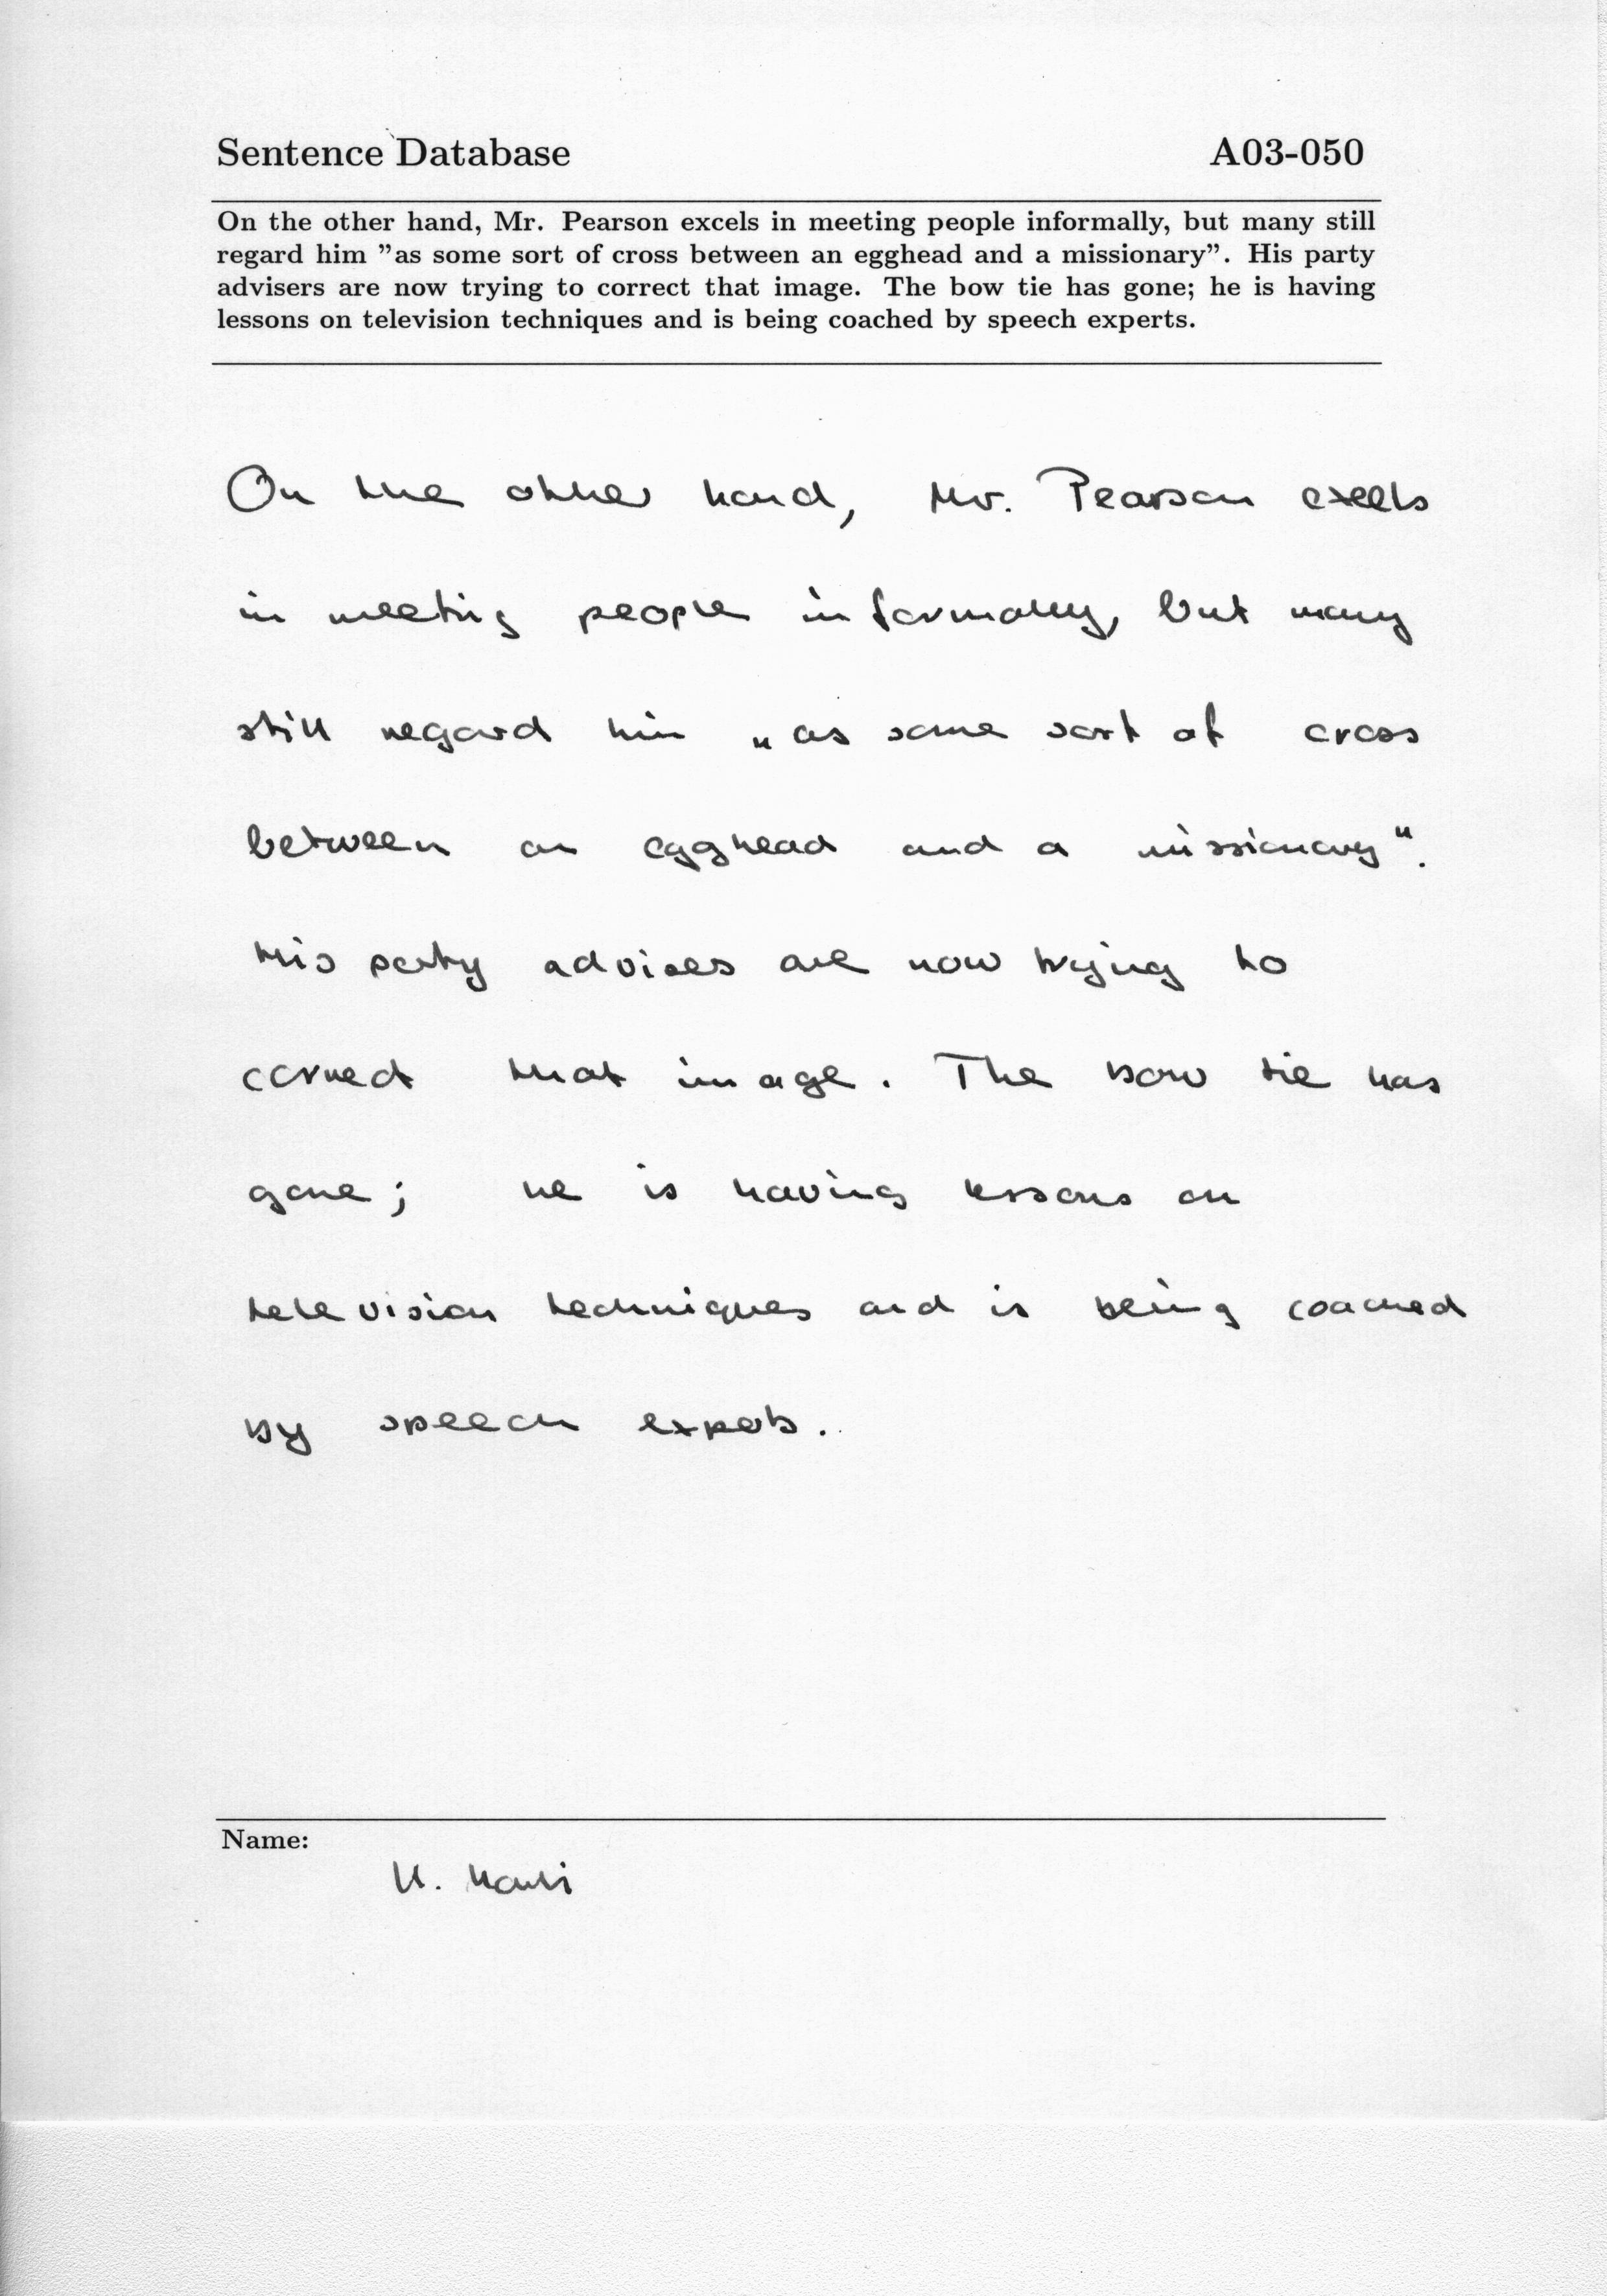 Sentence Database A03-050
On the other hand, Mr. Pearson excels in meeting people informally, but many still
regard him ”as some sort of cross between an egghead and a missionary”. His party
advisers are now trying to correct that image. The bow tie has gone; he is having
lessons on television techniques and is being coached by speech experts.
On the other hand, Mr. Pearson excels
in meeting people informally, but many
still regard him „as some sort of cross
between an egghead and a missionary“.
His party advisers are now trying to
correct that image. The bow tie has
gone; he is having lessons on
television techniques and is being coached
by speech experts.
Name: